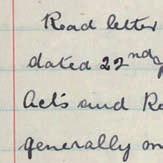 Read letter
dated 22nd
Acts and R
generally on